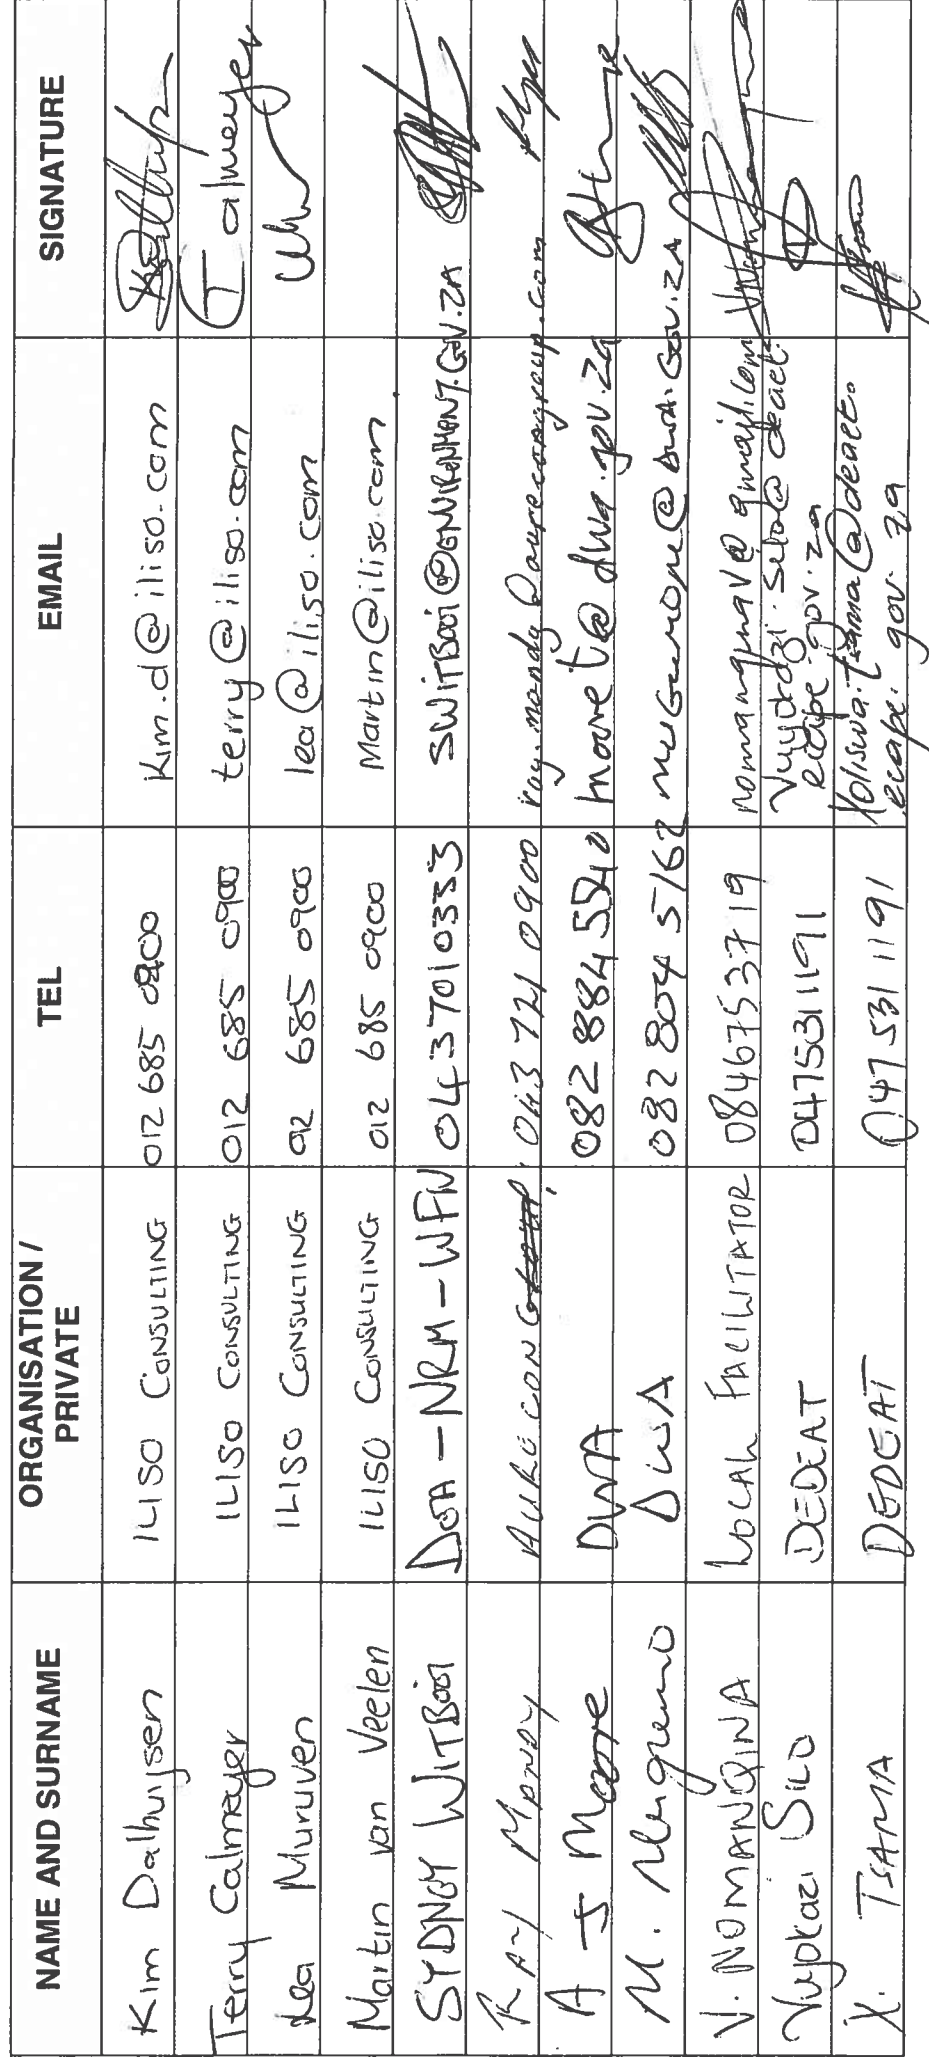 NAME AND SURNAME ORGANISATION / PRIVATE TEL EMAIL SIGNATURE
Kim Dalhuijsen ILISO CONSULTING 012 685 0900 Kim.d@iliso.com
Terry Calmeyer ILISO CONSULTING 012 685 0900 terry@iliso.com Calmeyer
Lea Muruven ILISO CONSULTING 012 685 0900 lea@iliso.com
Martin van Veelen ILISO CONSULTING 012 685 0900 Martin@iliso.com
SYDNEY WITBOOI DEA-NRM-WFW 043 7010333 SWITBOOI@ENVIRONMENT.GOV.ZA
RAY MONDY AURECON 043 721 0900 ray.mondy@aurecongroup.com
A J Moore DWA 082 884 5540 mooret@dwa.gov.za
M. DWA 082 804 5162 @DWA.GOV.ZA
V. NOMANQINA LOCAL FACILITATOR 0846753719 nomanqinav@gmail.com
Vuyokazi SILO DEDEAT 0475311191 silo@deaet.
ecape.gov.za
X. TSAMA DEDEAT 047 531 1191 Xoliswa.Tsama@deaet.
ecape.gov.za